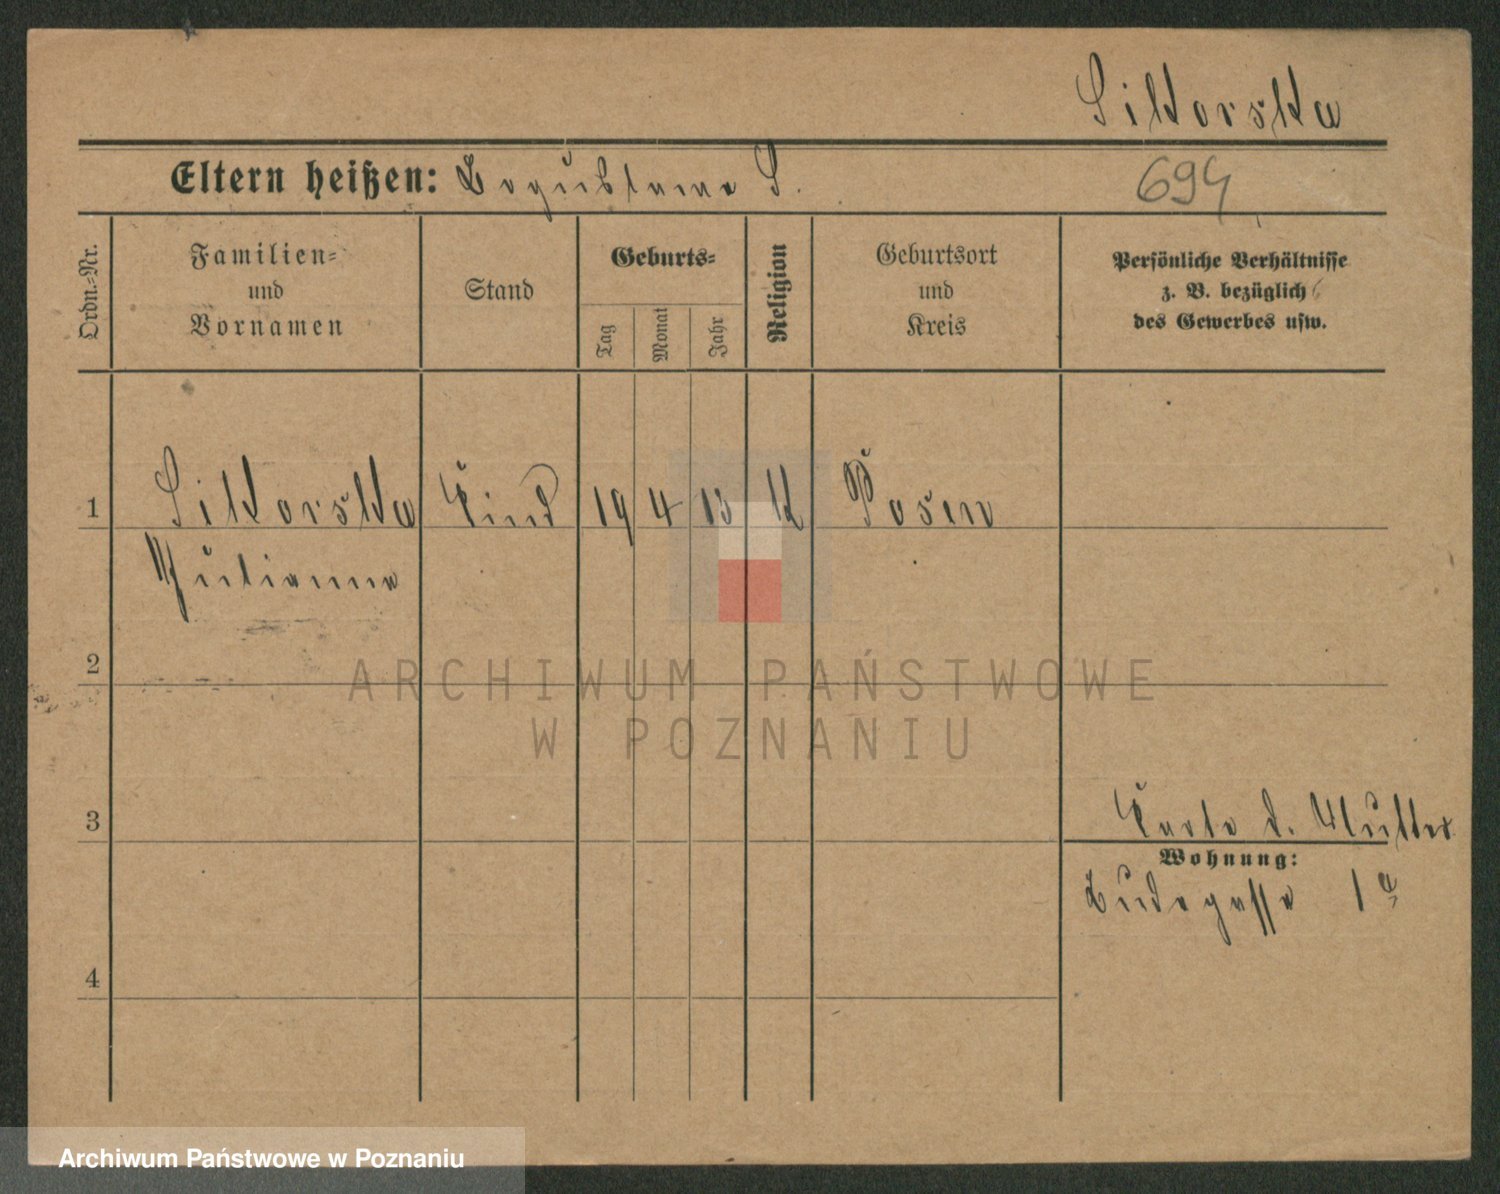 Sikorska
Eltern heißen: Boguslawa S.
694
Ordn.-Nr.
Familien-
und
Vornamen
Stand
Geburts-
Tag
Monat
Jahr
Religion
Geburtsort
und
Kreis
Persönliche Verhältnisse
z. B. bezüglich
des Gewerbes usw.
1 Sikorska Kind 19 4 13 k Posen
Julianna
2
ARCHIWUM PAŃSTWOWE
W POZNANIU
3
Karte d. Mutter
Wohnung:
Budegasse 1a
4
Archiwum Państwowe w Poznaniu